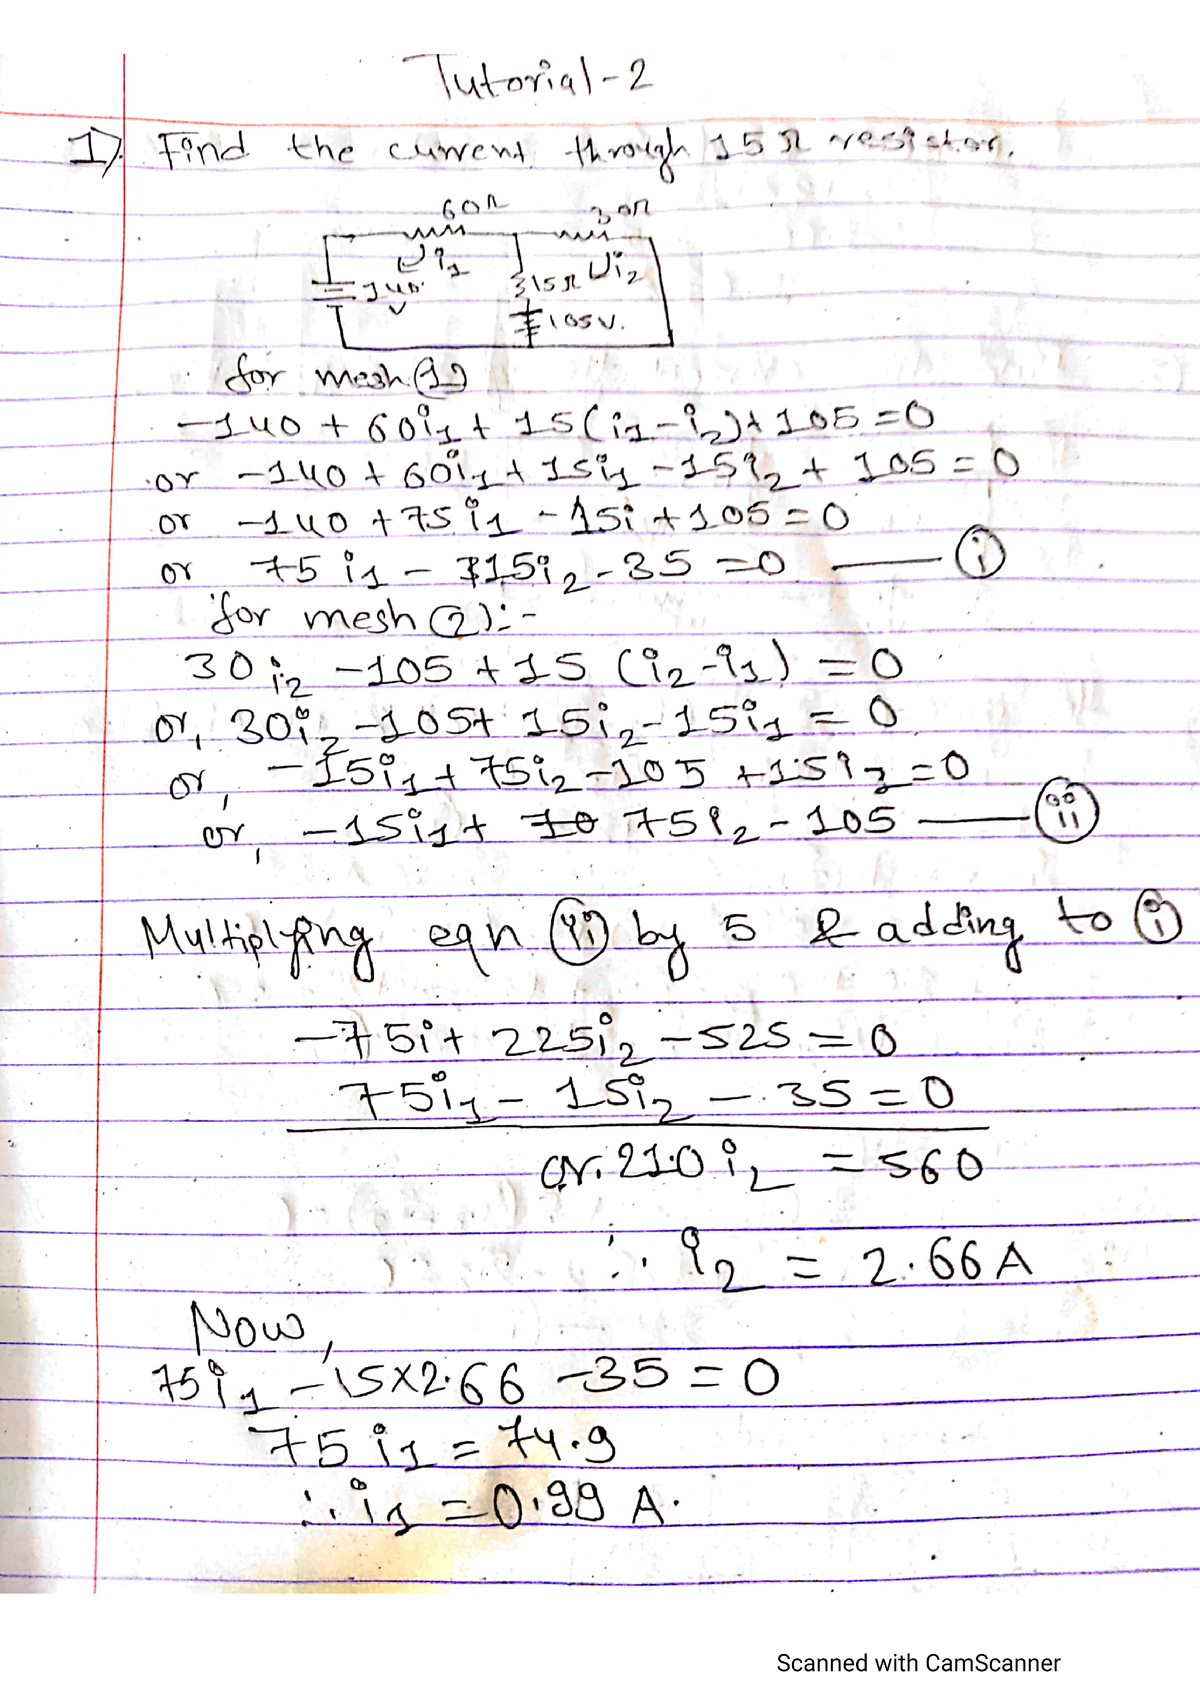 Tutorial-2
1). Find the current through 15Ω resistor.
60Ω 30Ω
i1 15Ω i2
140 V
105V.
for mesh (1)
-140 + 60i1 + 15(i1-i2)+105=0
or -140 + 60i1 + 15i1 -15i2 + 105 = 0
or -140 +75i1 -15i +105=0
or 75i1 - 15i2 -35 =0 — (i)
for mesh (2):-
30i2 -105 +15 (i2-i1) =0
or, 30i2 -105+ 15i2-15i1 = 0
or, -15i1+ 75i2 -105 +15i2=0
or, -15i1+ 75i2-105 — (ii)
Multiplying eqn (ii) by 5 & adding to (i)
-75i+ 225i2 -525 = 0
75i1 - 15i2 - 35=0
or. 210i2 =560
∴ i2 = 2.66A
Now,
75i1 -15×2.66 -35 = 0
75i1 = 74.9
∴ i1 =0.99 A.
Scanned with CamScanner